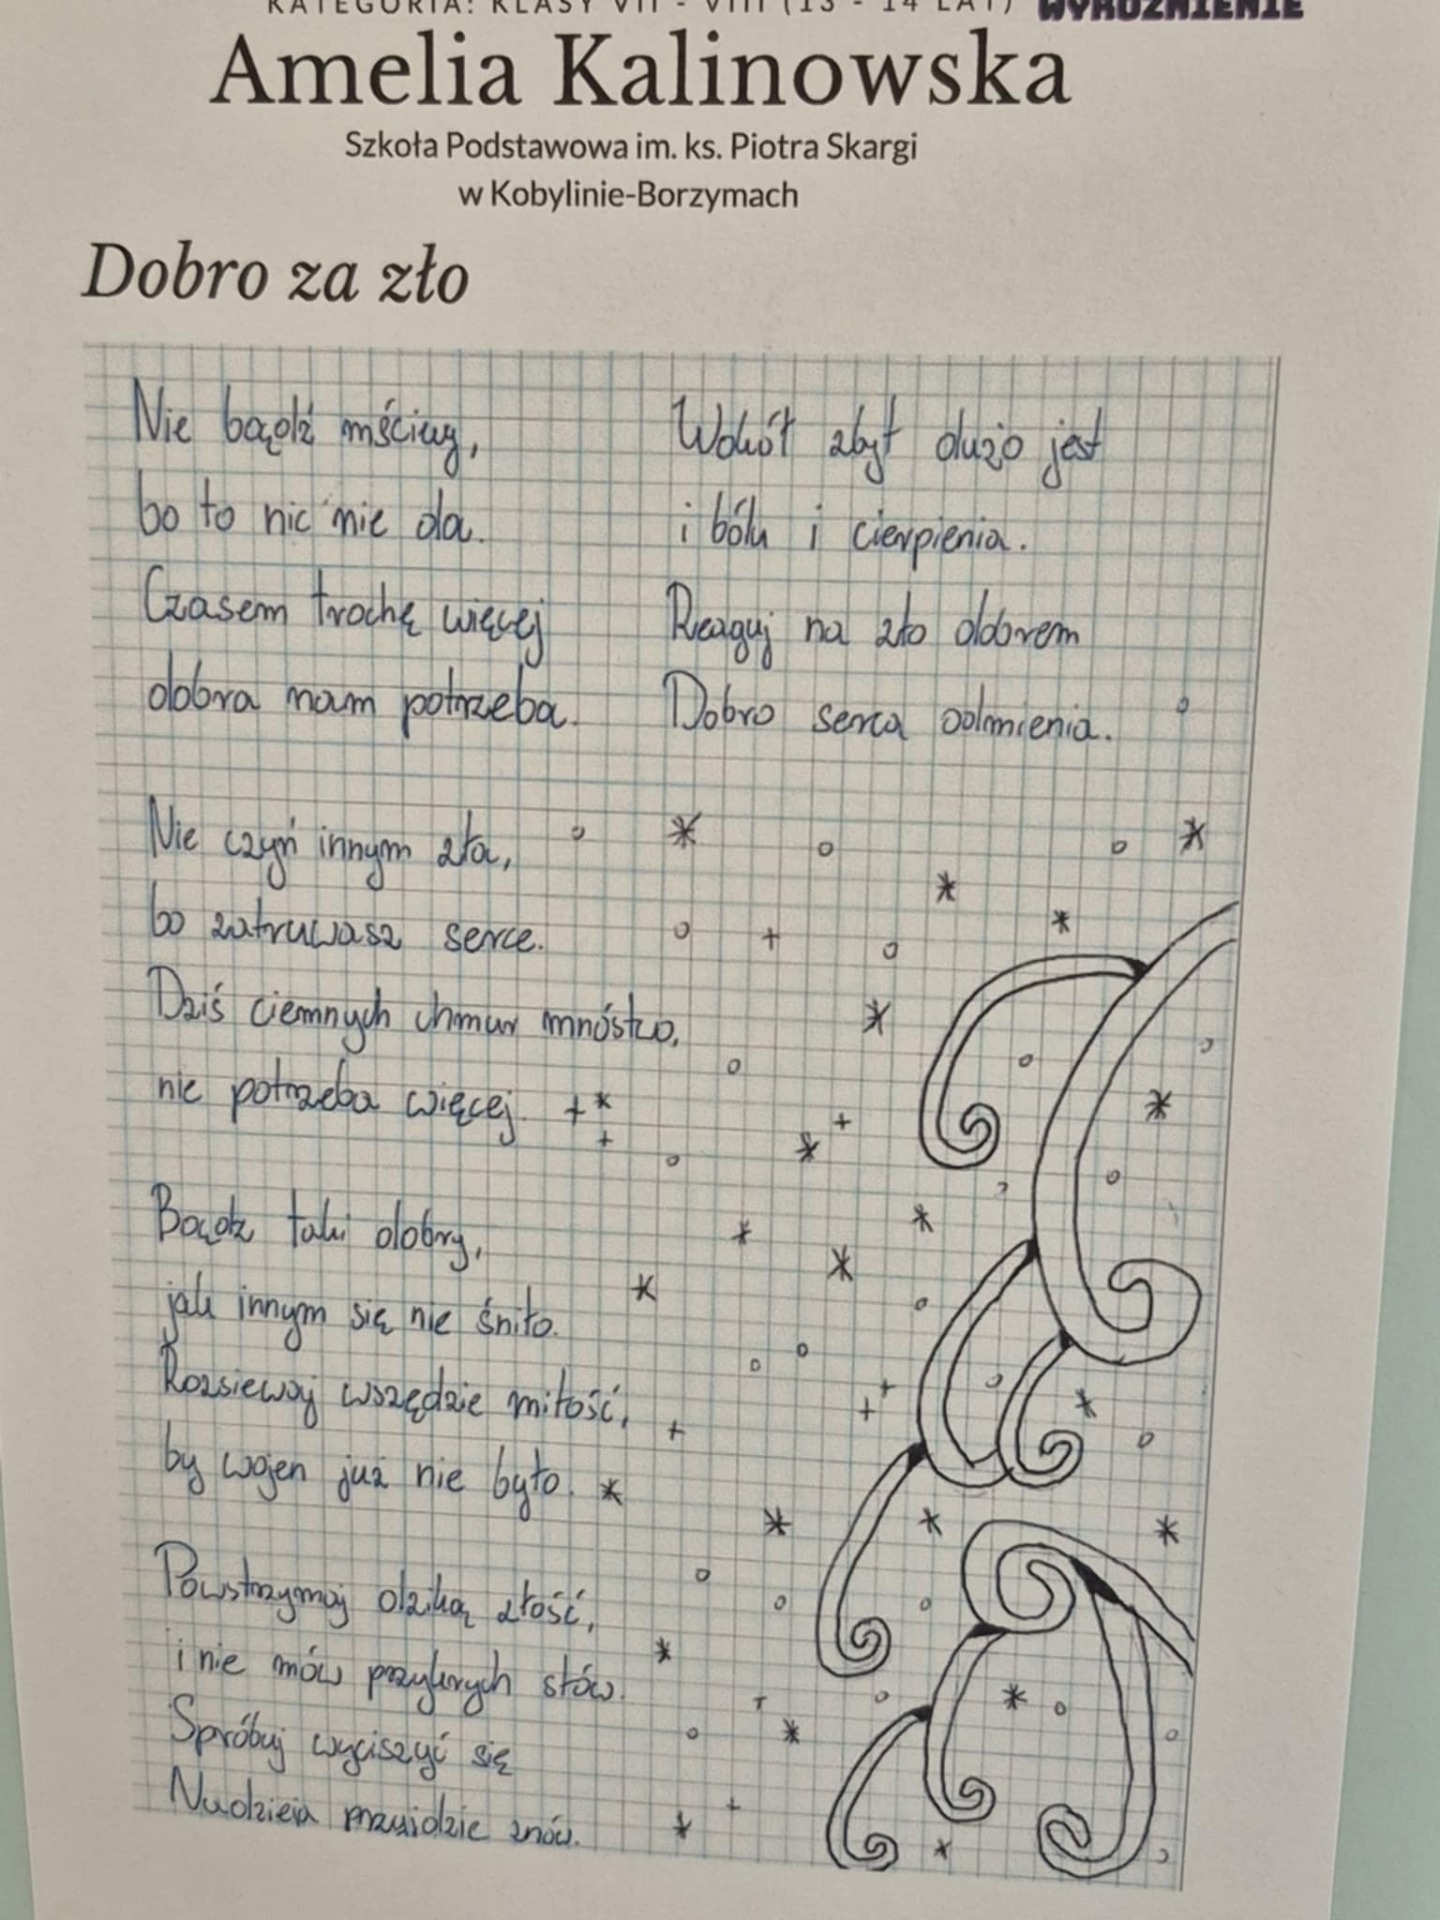 KATEGORIA: KLASY VII - VIII (13 - 14 LAT) WYRÓŻNIENIE
Amelia Kalinowska
Szkoła Podstawowa im. ks. Piotra Skargi
w Kobylinie-Borzymach
Dobro za zło
Nie bądź mściwy,
bo to nic nie da.
Czasem trochę więcej
dobra nam potrzeba.
Nie czyń innym zła,
bo zatruwasz serce.
Dziś ciemnych chmur mnóstwo,
nie potrzeba więcej.
Bądź taki dobry,
jak innym się nie śniło.
Rozsiewaj wszędzie miłość,
by wojen już nie było.
Powstrzymaj dziką złość,
i nie mów przykrych słów.
Spróbuj wyciszyć się
Nadzieja przyjdzie znów.
Wokół zbyt dużo jest
i bólu i cierpienia.
Reaguj na zło dobrem
Dobro serca odmienia.